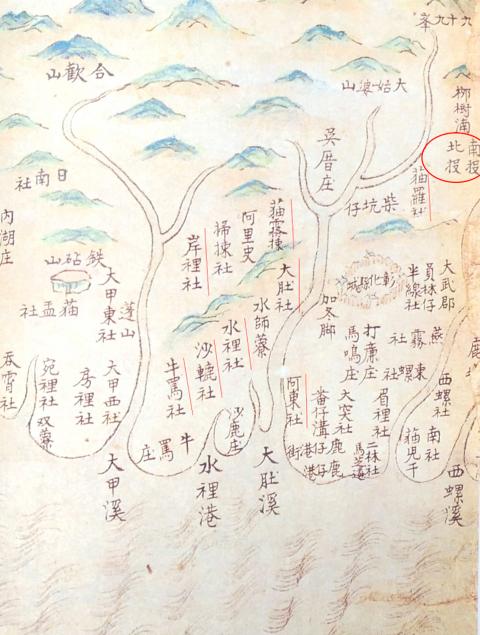 九十九峯
合歡山
大姑婆山
柳樹湳
南投
北投
吳厝庄
猫羅社
柴坑仔
日南社
内湖庄
猫霧揀
阿里史
掃揀社
岸裡社
鉄砧山
大甲東社
蓬山
猫盂社
大肚社
水師藔
水裡社
沙轆社
牛罵社
彰化縣城
加冬脚
大武郡
員林仔
半線社
燕霧社
打廉庄
馬鳴庄
東螺社
西螺社
眉裡社
大突社
阿東社
番仔溝
鹿仔港
二林社
南社
猫兒干
西螺溪
大肚溪
沙鹿庄
水裡港
牛罵庄
大甲溪
大甲西社
房裡社
宛裡社
双藔
吞霄社
鹿